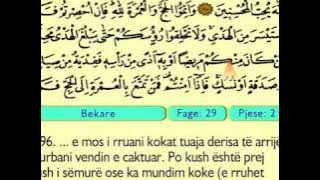 يُحِبُّ الْمُحْسِنِينَ وَأَتِمُّوا الْحَجَّ وَالْعُمْرَةَ لِلَّهِ فَإِنْ أُحْصِرْتُمْ
اسْتَيْسَرَ مِنَ الْهَدْيِ وَلَا تَحْلِقُوا رُءُوسَكُمْ حَتَّىٰ يَبْلُغَ الْهَدْيُ
كَانَ مِنكُم مَّرِيضًا أَوْ بِهِ أَذًى مِّن رَّأْسِهِ فَفِدْيَةٌ مِّن
صَدَقَةٍ أَوْ نُسُكٍ فَإِذَا أَمِنتُمْ فَمَن تَمَتَّعَ بِالْعُمْرَةِ إِلَى الْحَجِّ
Bekare Fage: 29 Pjese: 2
96. ... e mos i rruani kokat tuaja derisa të arrijë
urbani vendin e caktuar. Po kush është prej
sh i sëmurë ose ka mundim koke (e rruhet